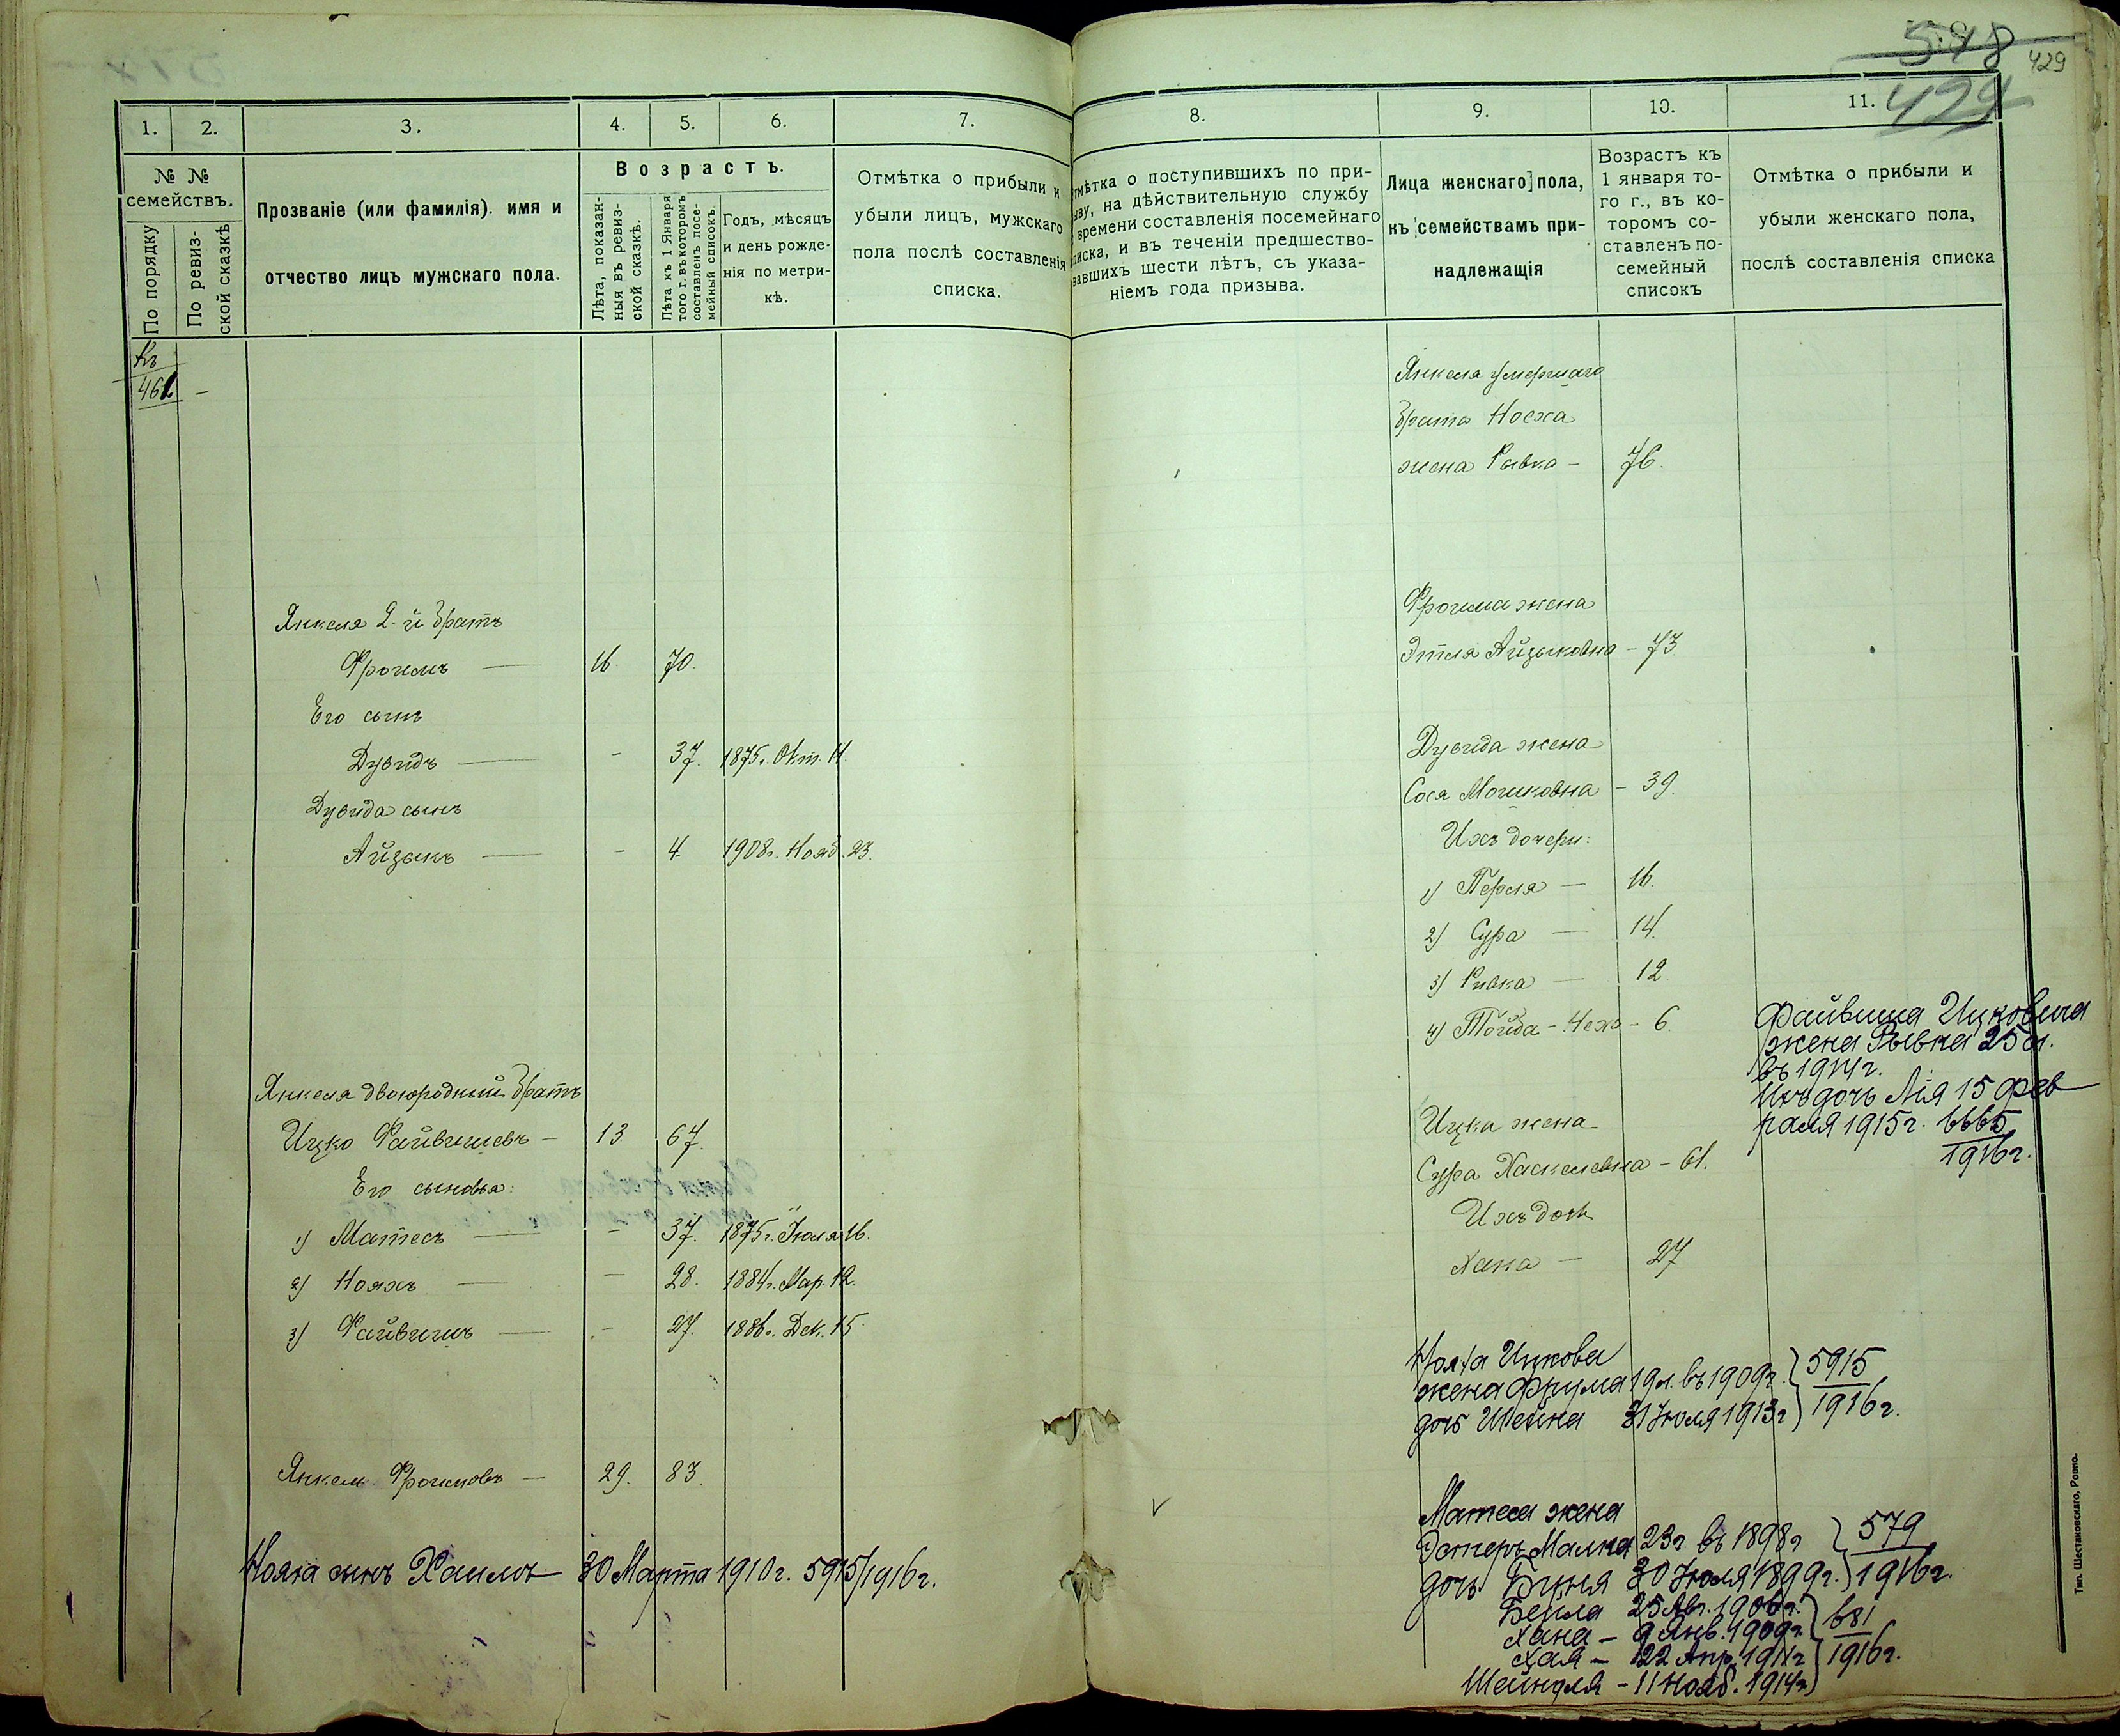 548
429
424
1.
2.
3.
4.
5.
6.
7.
№ №
семействъ.
По порядку
По ревиз-
ской сказкѣ
Прозваніе (или фамилія). имя и
отчество лицъ мужскаго пола.
Возрастъ.
Лѣта, показан-
ныя въ ревиз-
ской сказкѣ.
Лѣта къ 1 Января
того г. въ которомъ
составленъ посе-
мейный списокъ.
Годъ, мѣсяцъ
и день рожде-
нія по метри-
кѣ.
Отмѣтка о прибыли и
убыли лицъ, мужскаго
пола послѣ составленія
списка.
Къ
461 -
Янкеля 2-й братъ
Фроимъ — 16. 70.
Его сынъ
Дувидъ — - 37. 1875г. Окт. 11.
Дувида сынъ
Айзыкъ — - 4. 1908г. Нояб. 23.
Янкеля двоюродный братъ
Ицко Файвишевъ - 13 67.
Его сыновья:
1) Матесъ — - 37. 1875г. Іюля 16.
2) Нояхъ — - 28. 1884г. Мар. 12.
3) Файвишъ — - 27. 1886г. Дек. 15
Янкель Фроимовъ — 29. 83.
Нояха сынъ Хаимъ 30 Марта 1910г. 5915/1916г.
8.
9.
10.
11.
тмѣтка о поступившихъ по при-
ыву, на дѣйствительную службу
времени составленія посемейнаго
писка, и въ теченіи предшество-
вавшихъ шести лѣтъ, съ указа-
ніемъ года призыва.
Лица женскаго пола,
къ семействамъ при-
надлежащія
Возрастъ къ
1 января то-
го г., въ ко-
торомъ со-
ставленъ по-
семейный
списокъ
Отмѣтка о прибыли и
убыли женскаго пола,
послѣ составленія списка
Янкеля умершаго
брата Носха
жена Рывка - 76.
Фроима жена
Этля Айзыковна - 73
Дувида жена
Сося Мошковна - 39.
Ихъ дочери:
1) Перля — 16.
2) Сура — 14.
3) Ривка — 12.
4) Тойба-Чехо - 6.
Файвиша Ицковича
жена Рывка 25 л.
въ 1914г.
Ихъ дочь Лія 15 фев
раля 1915г. 6665
1916г.
Ицка жена
Сура Хаскелевна - 61.
Ихъ дочь
Хана — 27
Нояха Ицкова
жена Фрума 19 л. въ 1909г. } 5915
дочь Шейна 31 Іюля 1913г } 1916г.
Матеса жена
Эстеръ Малка 23г въ 1898г } 579
дочь Буня 30 Іюля 1899г. } 1916г.
Бейла 25 Авг. 1906г.
Хана - 9 Янв. 1909г. } 681
Хая - 22 Апр. 1911г } 1916г.
Шейндля - 11 Нояб. 1914г)
Тип. Шестаковскаго, Ровно.